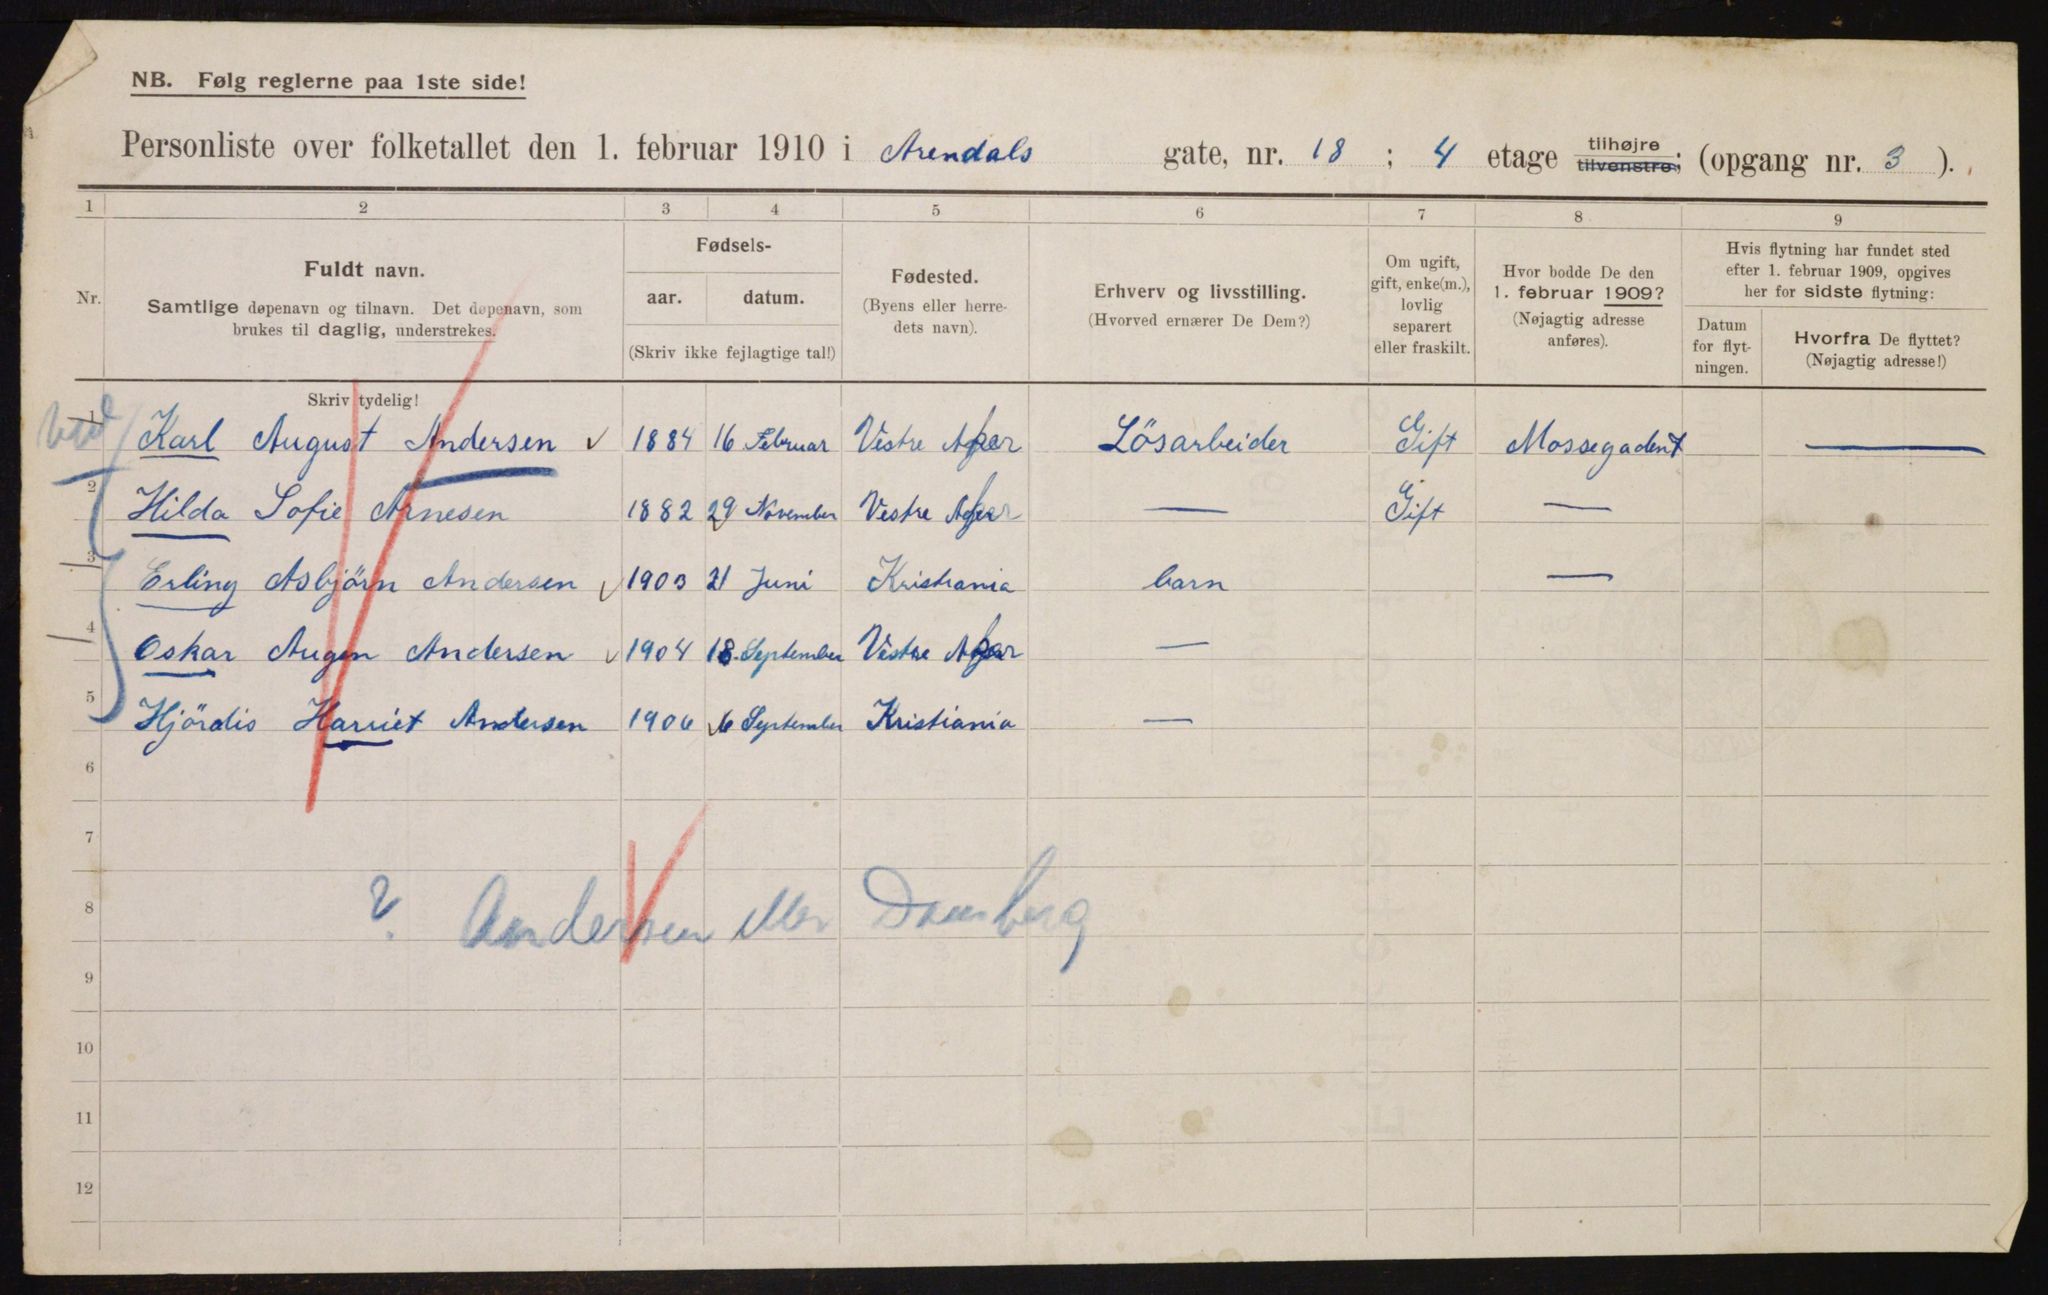 NB. Følg reglerne paa 1ste side!
Personliste over folketallet den 1. februar 1910 i Arendals gate, nr. 18 ; 4 etage tilhøjre tilvenstre; (opgang nr. 3 ).
1 2 3 4 5 6 7 8 9
Nr.
Fuldt navn.
Samtlige døpenavn og tilnavn. Det døpenavn, som
brukes til daglig, understrekes.
Fødsels-
aar. datum.
(Skriv ikke fejlagtige tal!)
Fødested.
(Byens eller herre-
dets navn).
Erhverv og livsstilling.
(Hvorved ernærer De Dem?)
Om ugift,
gift, enke(m.),
lovlig
separert
eller fraskilt.
Hvor bodde De den
1. februar 1909?
(Nøjagtig adresse
anføres).
Hvis flytning har fundet sted
efter 1. februar 1909, opgives
her for sidste flytning:
Datum
for flyt-
ningen.
Hvorfra De flyttet?
(Nøjagtig adresse!)
Skriv tydelig!
1 Karl August Andersen 1884 16 Februar Vestre Aker Lösarbeider Gift —
2 Hilda Sofie Arnesen 1882 29 November Vestre Aker — Gift —
3 Erling Asbjörn Andersen 1903 21 Juni Kristiania barn —
4 Oskar Augen Andersen 1904 18 September Vestre Aker —
5 Hjördis Harriet Andersen 1906 6 September Kristiania —
6
7
8 ? Andersen eller
9
10
11
12